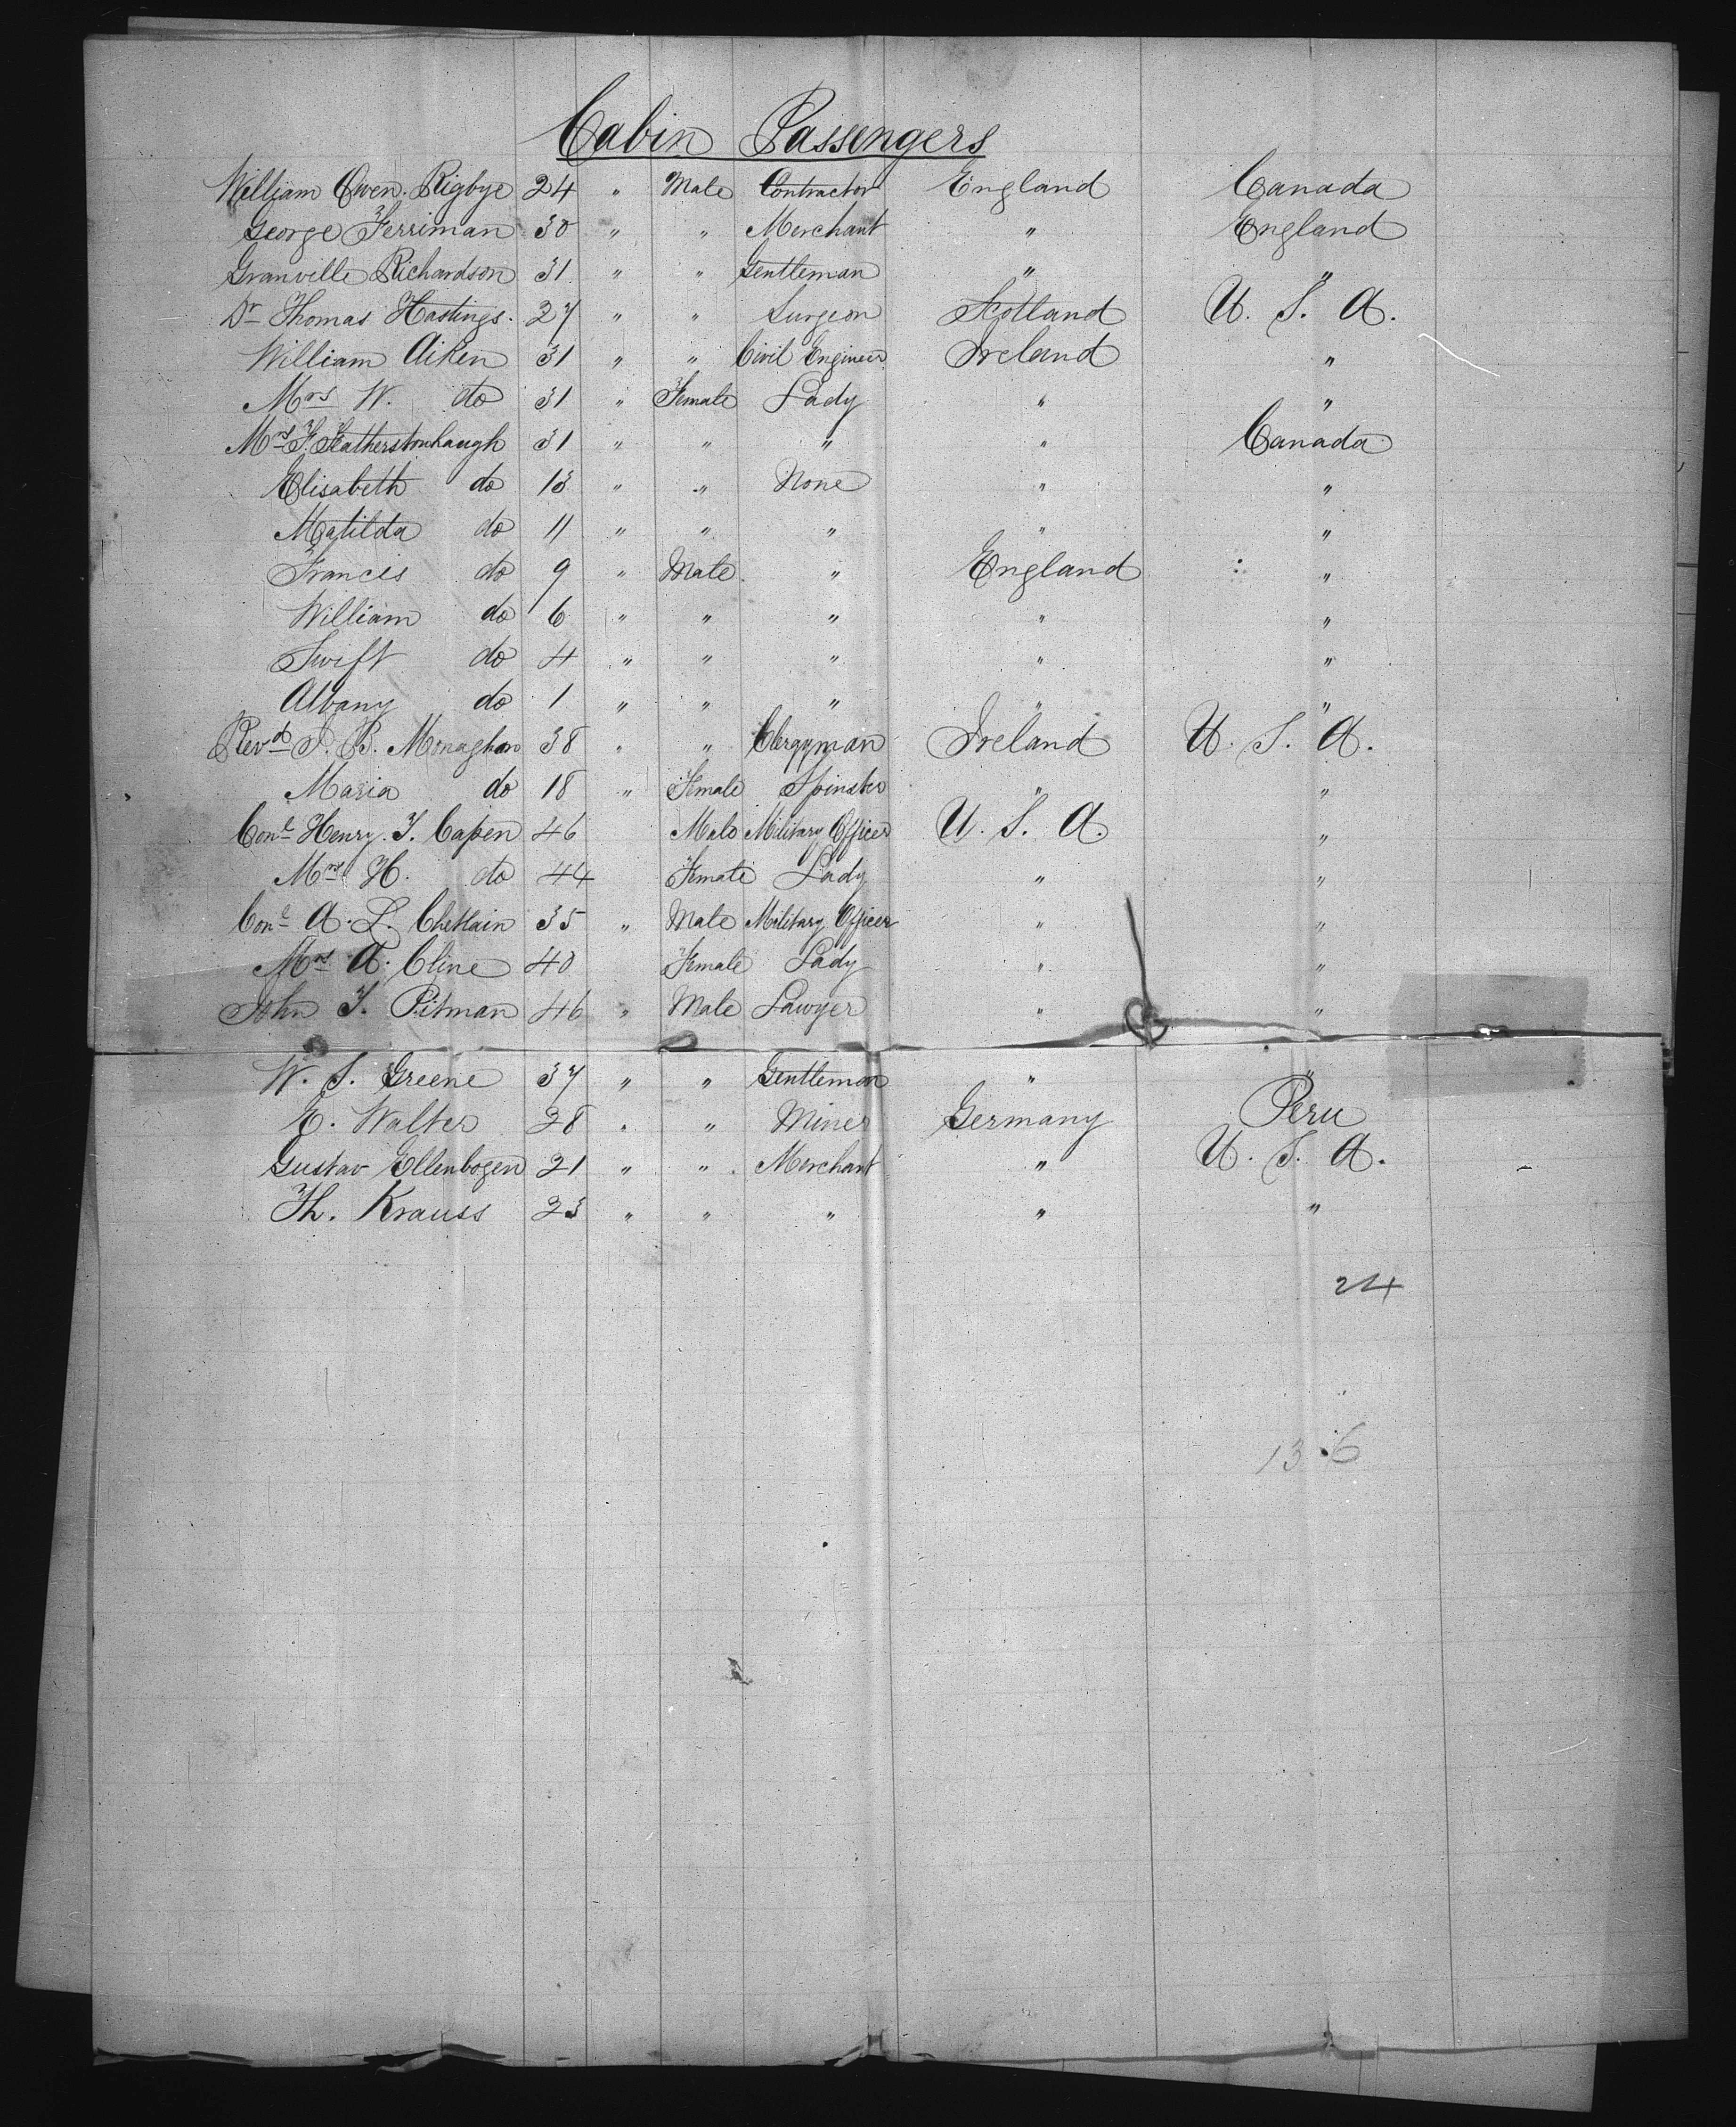 Cabin Passengers
William Owen Rigbye 24 " Male Contractor England Canada
George Ferriman 30 " " Merchant " England
Granville Richardson 31 " " Gentleman " "
Dr Thomas Hastings. 27 " " Surgeon Scotland U. S. A.
William Aiken 31 " " Civil Engineer Ireland "
Mrs W. do 31 " Female Lady " "
Mrs F. Featherstonhaugh 31 " " " " Canada
Elisabeth do 13 " " None " "
Matilda do 11 " " " " "
Francis do 9 " Male " England "
William do 6 " " " " "
Swift do 4 " " " " "
Albany do 1 " " " " "
Revd J. B. Monaghan 38 " " Clergyman Ireland U. S. A.
Maria do 18 " Female Spinster " "
Conl Henry. T. Capen 46 Male Military Officer U. S. A. "
Mrs H. do 44 Female Lady " "
Conl A. L. Chetlain 35 " Male Military Officer " "
Mrs A. Cline 40 Female Lady " "
John T. Pitman 46 " Male Lawyer " "
W. S. Greene 37 " " Gentleman " "
E. Walter 28 " " Miner Germany Peru
Gustav Ellenbogen 21 " " Merchant " U. S. A.
Th. Krauss 23 " " " " "
24
136